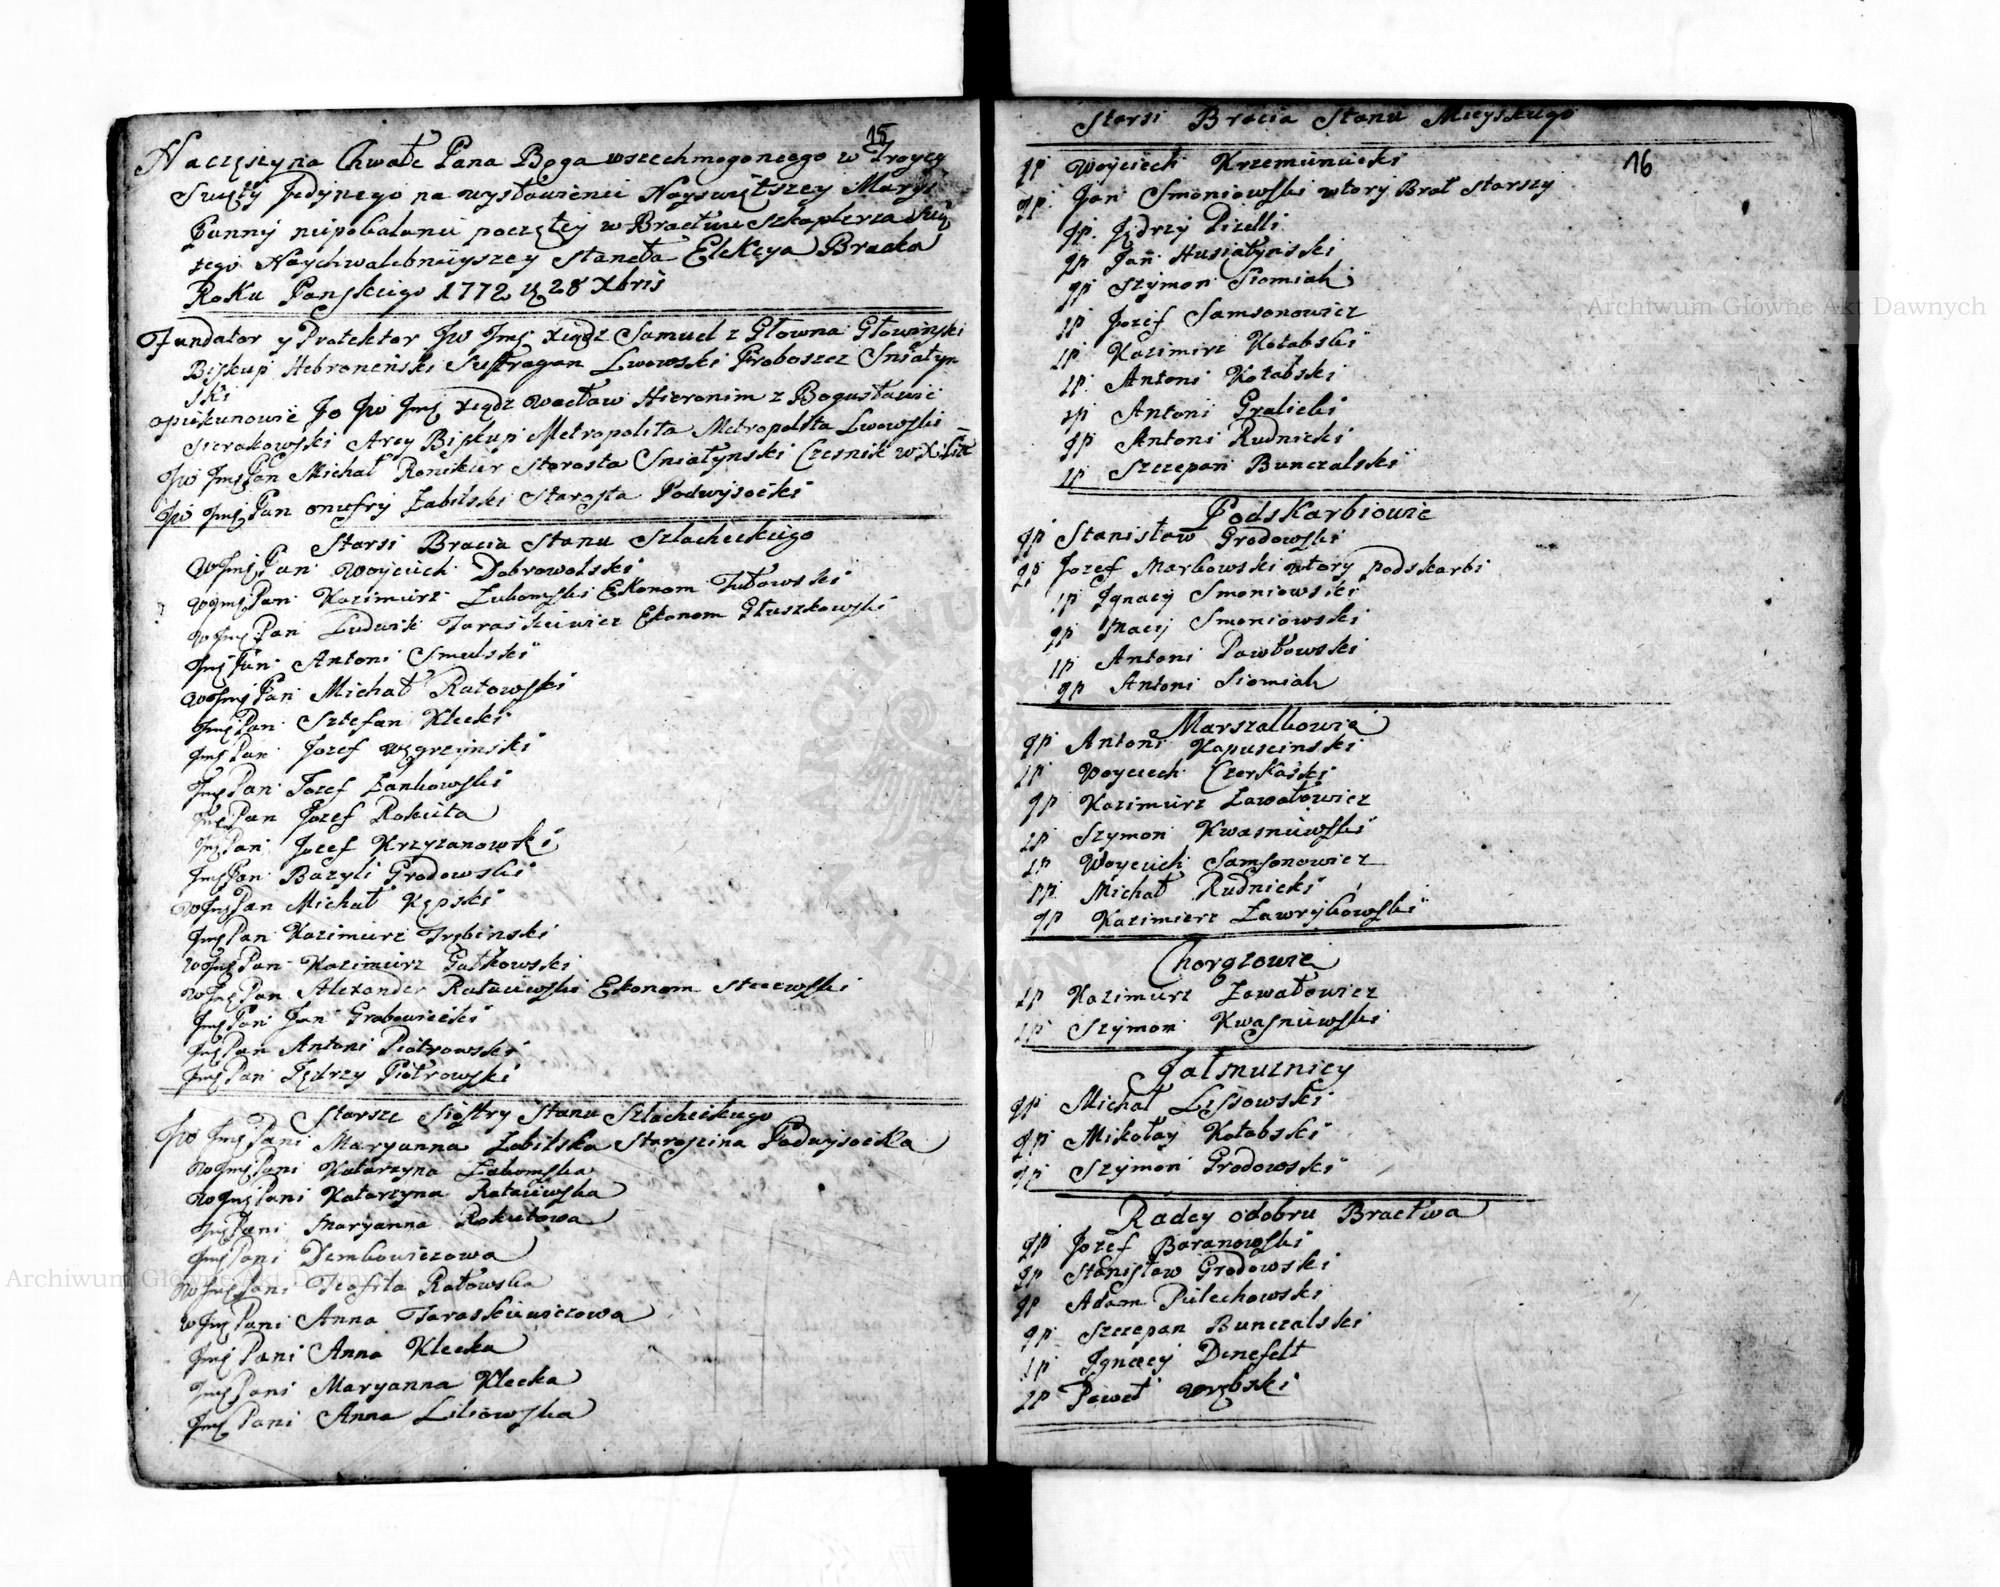 15
Naczęszyna Chwałe Pana Boga wszechmogoncego w Troycy
Swęty Jedynego na wystawienie Nayswiętszey Maryi
Panny niepokalanie poczętey w Bractwie Szkaplerza Swię
tego Naychwalebnieyszey Staneła Elekcya Bracka
Roku Panskiego 1772 D 28 Xbris
Fundator y Protektor JW Jmć xiądz Samuel z Głowna Głowinski
Biskup Hebronenski Suffragan Lwowski Proboszcz Sniatyn
ski
opiekunowie Jo JW Jmć xiądz Wacław Hieronim z Bogusławic
Sierakowski Arcy Biskup Metropolita Metropolita Lwowski
JW Jmć Pan Michał Ronikier Starosta Sniatynski Czesnik w X Litt
JW Jmć Pan Onufry Zabilski Starosta Podwysocki
Starsi Bracia Stanu Szlacheckiego
W Jmć Pan Woyciech Dobrowolski
W Jmć Pan Kazimierz Lubomski Ekonom Tułowski
W Jmć Pan Ludwik Taraskiewicz Ekonom Głuszkowski
Jmć Pan Antoni Smulski
W Jmć Pan Michał Ratowski
Jmć Pan Sztefan Klecki
Jmć Pan Jozef Węgrzynski
Jmć Pan Jozef Zankowski
Jmć Pan Jozef Rokuta
Jmć Pan Jozef Krzyzanowski
Jmć Pan Bazyli Grodowski
W Jmć Pan Michał Kępski
Jmć Pan Kazimierz Trębinski
W Jmć Pan Kazimierz Gutkowski
W Jmć Pan Alexander Rataiewski Ekonom Stecewski
Jmć Pan Jan Grabowiecki
Jmć Pan Antoni Piotrowski
Jmć Pan Jędrzy Piotrowski
Starsze Siostry Stanu Szlacheckiego
JW Jmć Pani Maryanna Zabilska Staroscina Podwysocka
W Jmć Pani Katarzyna Lubomska
W Jmć Pani Katarzyna Rataiewska
Jmć Pani Maryanna Rokutowa
Jmć Pani Dembowiczowa
W Jmć Pani Teofila Ratowska
W Jmć Pani Anna Taraskiewiczowa
Jmć Pani Anna Klecka
Jmć Pani Maryanna Klecka
Jmć Pani Anna Lisiowska
Starsi Bracia Stanu Mieyskiego
16
JP Woyciech Krzemieniecki
JP Jan Smoniowski wtory Brat Starszy
JP Jędrzy Pizelli
JP Jan Husiatynski
JP Szymon Siomiak
JP Jozef Samsonowicz
JP Kazimirz Kołabski
JP Antoni Kołabski
JP Antoni Gralicki
JP Antoni Rudnicki
JP Szczepan Bunczalski
Podskarbiowie
JP Stanisław Grodowski
JP Jozef Markowski wtory podskarbi
JP Ignacy Smoniowski
JP Maciy Smoniowski
JP Antoni Pawłowski
JP Antoni Siomiak
Marszalkowie
JP Antoni Kapuscinski
JP Woyciech Czerkaski
JP Kazimierz Zawałowicz
JP Szymon Kwasniewski
JP Woyciech Samsonowicz
JP Michał Rudnicki
JP Kazimierz Zawrykowski
Chorązowie
JP Kazimierz Zawałowicz
JP Szymon Kwasniewski
Jałmuznicy
JP Michał Lissowski
JP Mikołay Kołabski
JP Szymon Grodowski
Radcy odobru Bractwa
JP Jozef Baranowski
JP Stanisław Grodowski
JP Adam Pulechowski
JP Szczepan Bunczalski
JP Ignacy Denefelt
JP Paweł Wrębski
Archiwum Główne Akt Dawnych
Archiwum Główne Akt Dawnych